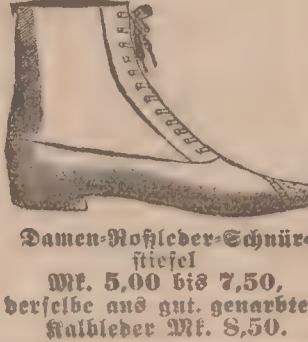 Damen-Roßleder-Schnür-
stiefel
Mk. 5,00 bis 7,50,
derselbe aus gut. genarbte
Kalbleder Mk. 8,50.